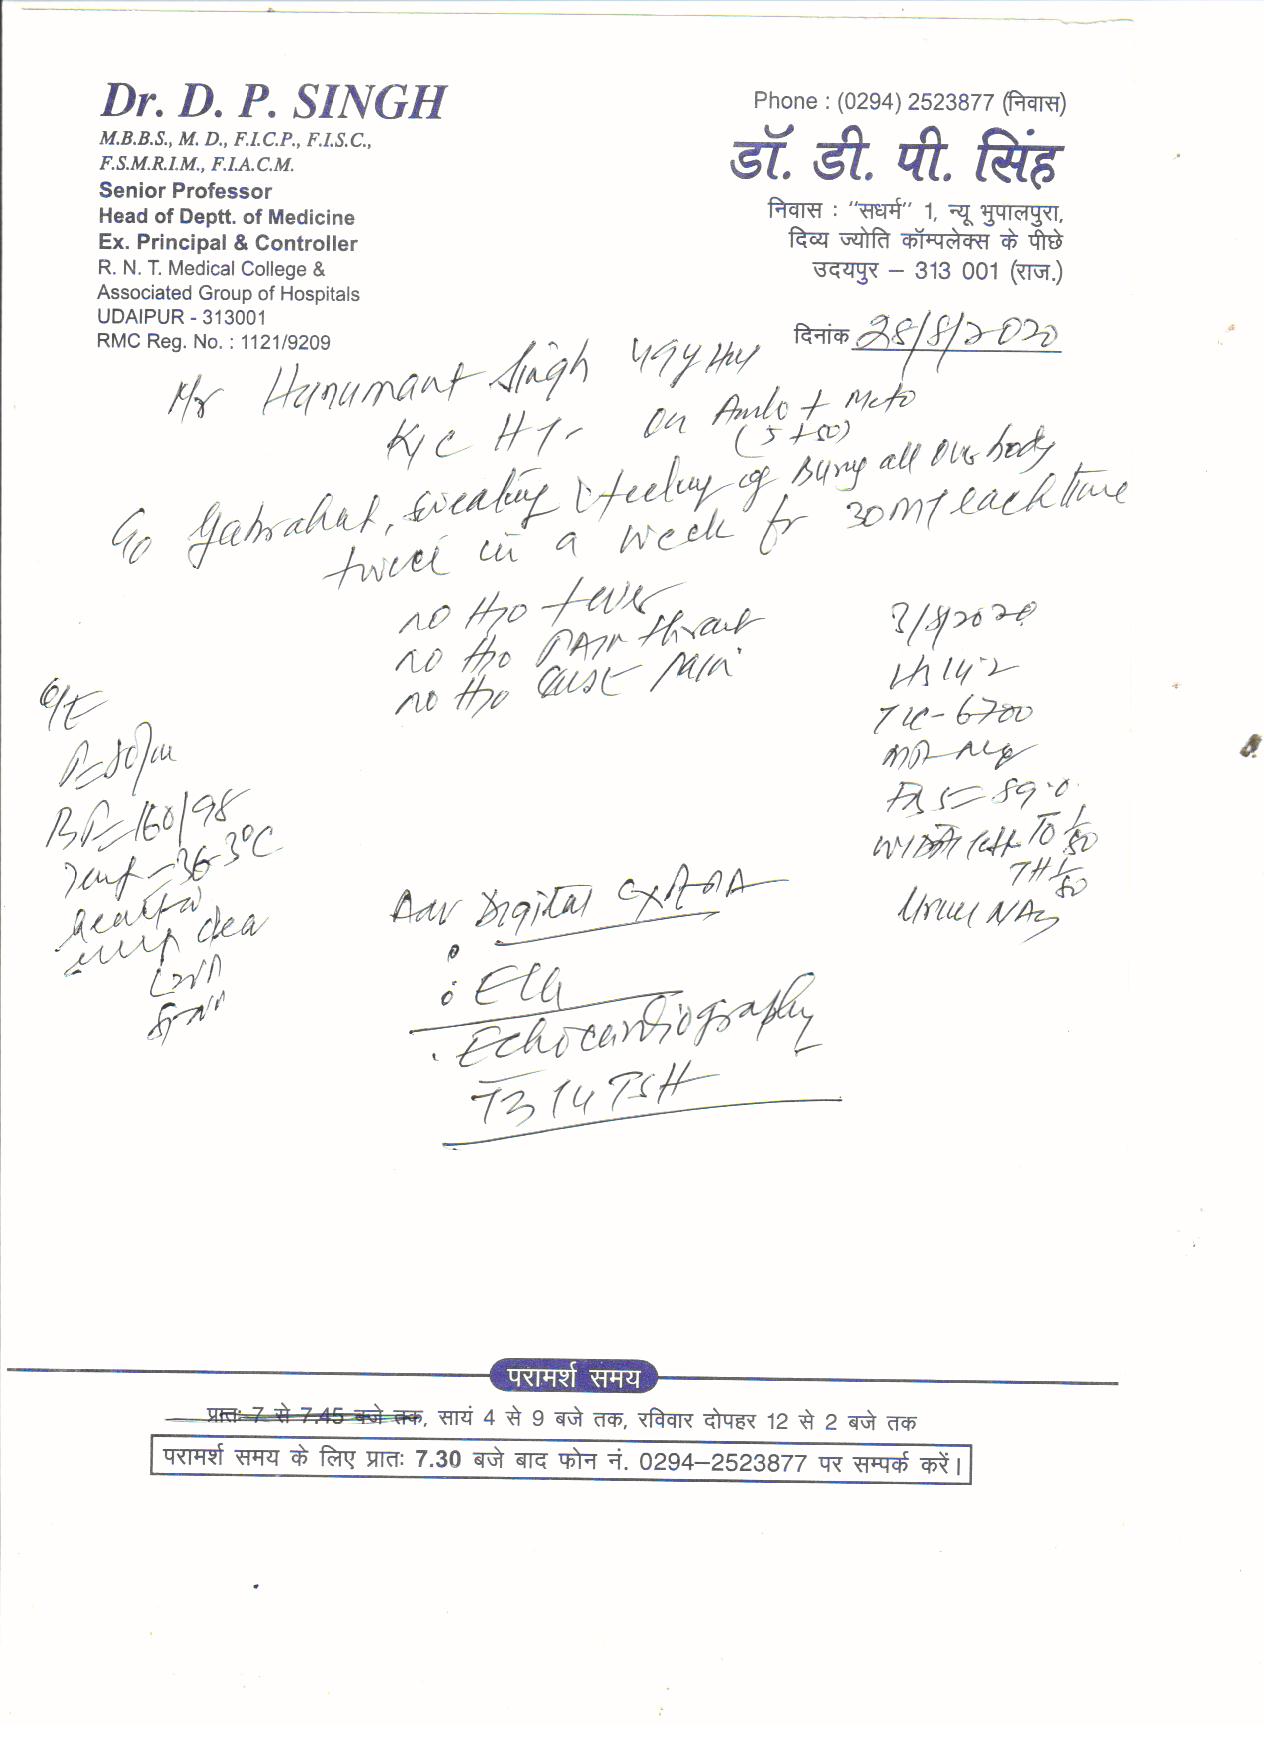 Dr. D. P. SINGH
M.B.B.S., M. D., F.I.C.P., F.I.S.C.,
F.S.M.R.I.M., F.I.A.C.M.
Senior Professor
Head of Deptt. of Medicine
Ex. Principal & Controller
R. N. T. Medical College &
Associated Group of Hospitals
UDAIPUR - 313001
RMC Reg. No. : 1121/9209
Phone : (0294) 2523877 (निवास)
डॉ. डी. पी. सिंह
निवास : "सधर्म" 1, न्यू भुपालपुरा,
दिव्य ज्योति कॉम्पलेक्स के पीछे
उदयपुर – 313 001 (राज.)
दिनांक 28/8/2020
Mr Hanumant Singh 49y
K/C HT on Amlo + Meto
(5+50)
C/o gabrahat, sweating feeling of all over body
twice in a week for 30 mt each time
no H/o fever
no H/o pain throat
no H/o chest pain
3/8/2020
Hb 14.2
TLC- 6700
MP- Neg
FBS= 89.0
WIDAL TO 1/80
TH 1/80
Urine NAD
O/E
P= 80/m
BP=160/98
Temp = 36.3°C
clear
Adv Digital CXR PA
• ECG
• Echocardiography
T3 T4 TSH
परामर्श समय
प्रातः 7 से 7.45 बजे तक, सायं 4 से 9 बजे तक, रविवार दोपहर 12 से 2 बजे तक
परामर्श समय के लिए प्रातः 7.30 बजे बाद फोन नं. 0294–2523877 पर सम्पर्क करें।